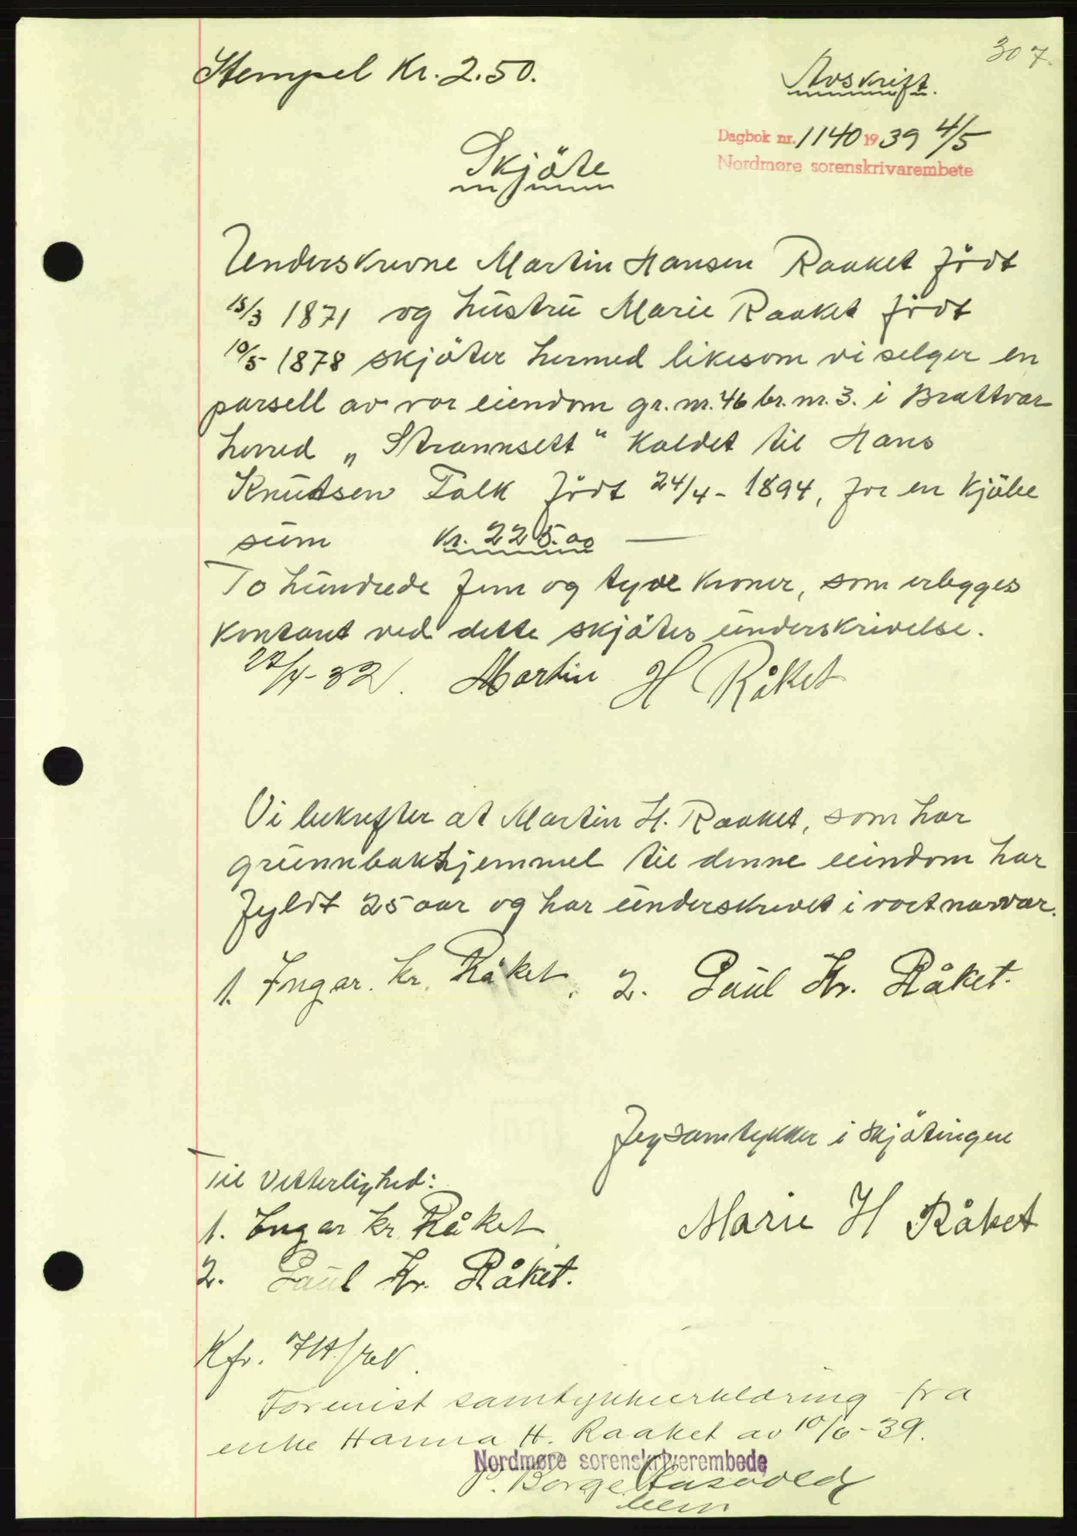 307.
Stempel kr. 2.50.
Avskrift.
Dagbok nr. 1140 1939 4/5
Nordmøre sorenskrivarembete
Skjöte
Underskrevne Martin Hansen Raaket födt
15/3 1871 og hustru Marie Raaket födt
10/5 1878 skjöter hermed likesom vi selger en
parsell av vor eiendom gr. nr. 46 br. nr. 3. i Brattvær
herred „Strannsett“ kaldet til Hans
Knutsen Falk födt 24/4 - 1894, for en kjöbe
sum kr. 225.00 —
To hundrede fem og tyve kroner, som erlegges
kontant ved dette skjötes underskrivelse.
22/4-32. Martin H Råket
Vi bekrefter at Martin H. Raaket, som har
grunnbokhjemmel til denne eiendom har
fyldt 25 aar og har underskrevet i vort nærvær.
1. Ingar. kr. Råket. 2. Paul Kr. Råket.
Jeg samtykker i skjötingen
Til Vitterlighed:
Marie H Råket
1. Ingar kr Råket
2. Paul Kr. Råket.
Kfr.
Forevist samtykkeerklæring fra
enke Hanna H. Raaket av 10/6-39.
Nordmøre sorenskriverembede
P. Borge